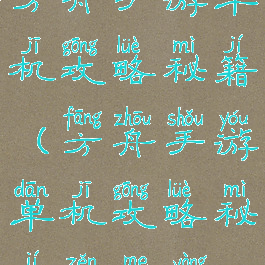 jī gōng lüè mì jí
机攻略秘籍
fāng zhōu shǒu yóu
（方舟手游
dān jī gōng lüè mì
单机攻略秘